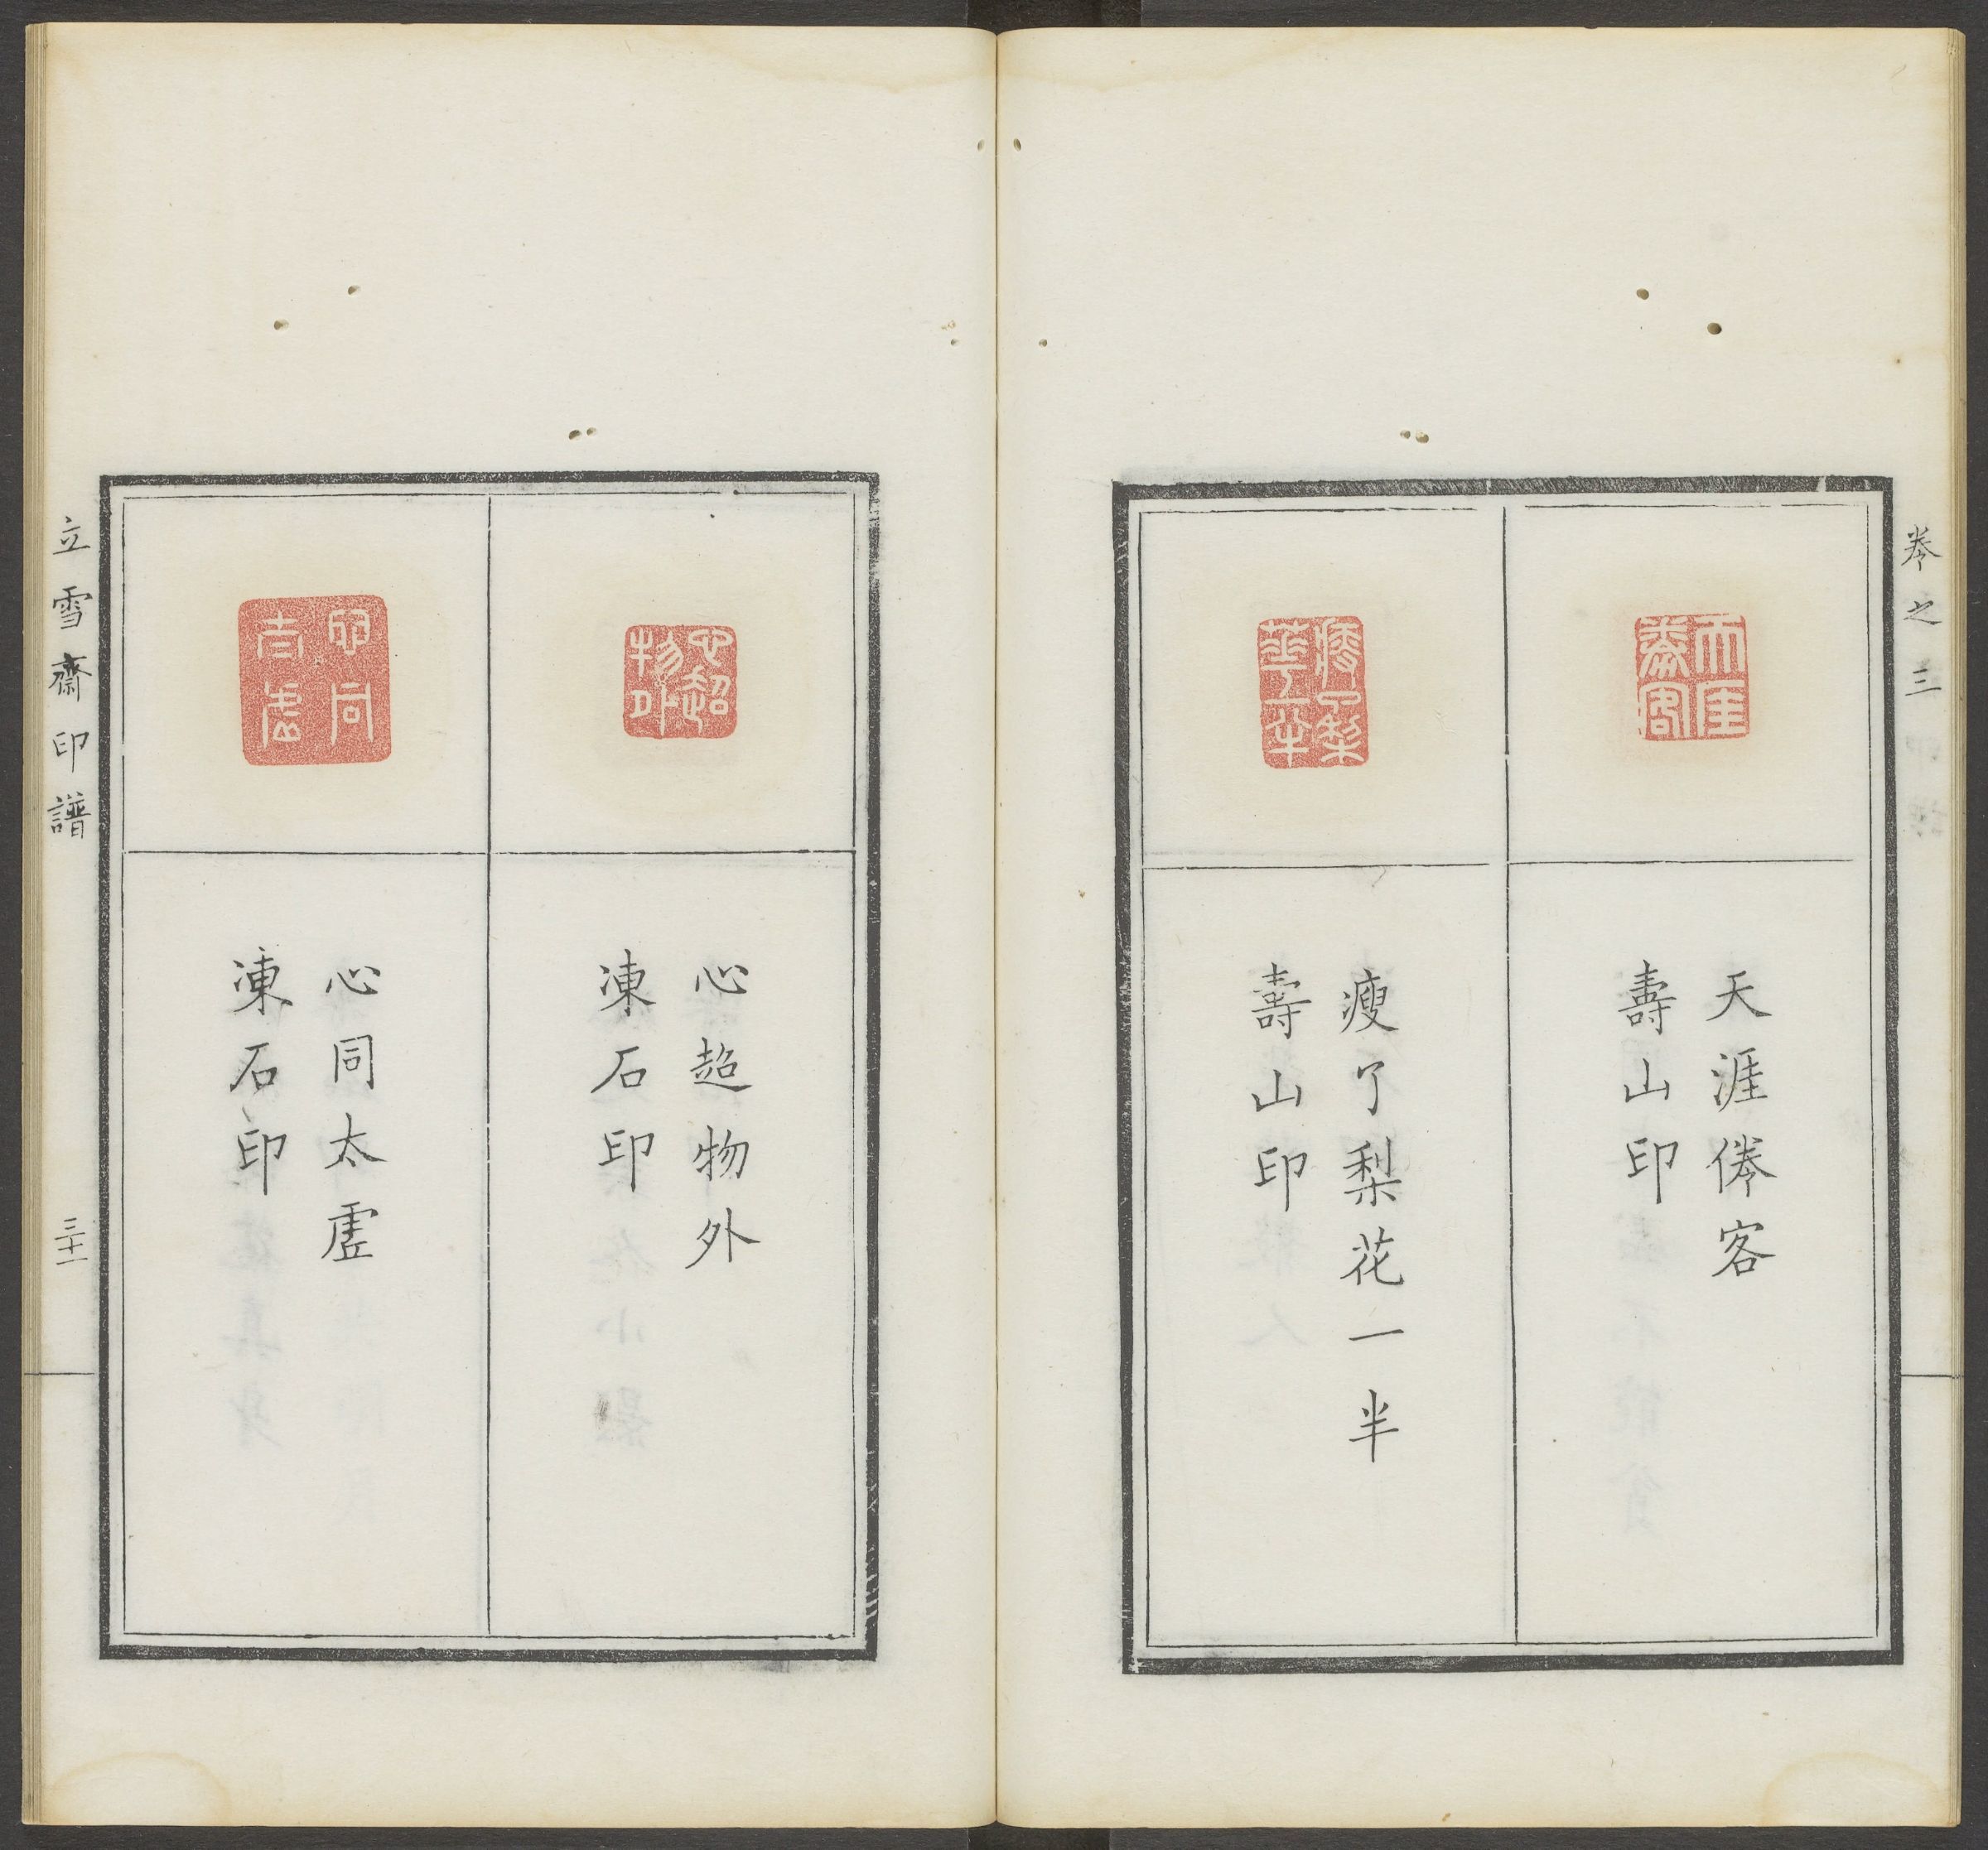 卷之三
天涯倦客
壽山印
瘦了梨花一半
壽山印
心超物外
凍石印
心同太虛
凍石印
立雪齋印譜
三十一